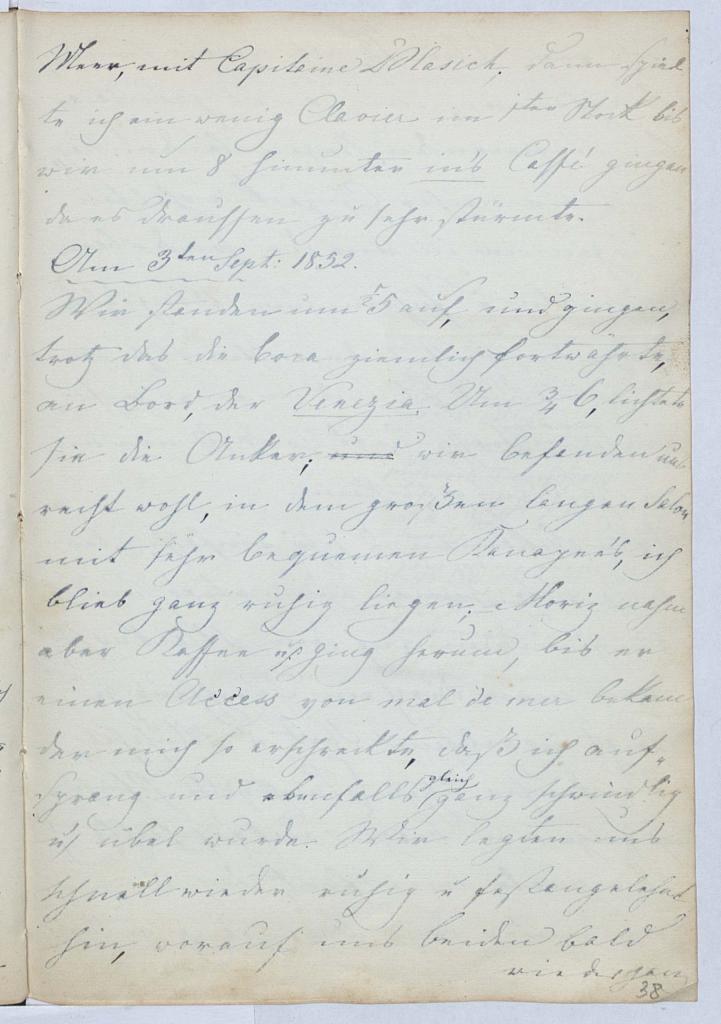 Meer, mit Capitaine Wlasich, dann spiel
te ich ein wenig Clavier im 1ten Stock bis
wir um 8 hinunter in's Caffé gingen
da es draussen zu sehr stürmte.
Am 3ten Sept: 1852.
Wir standen um 5 auf, und gingen,
trotz das die Bora ziemlich fortwährte,
an Bord, der Venezia. Um 3/4 6, lichtete
sie die Anker, und wir befanden uns
recht wohl, in dem großen langen Salon
mit sehr bequemen Kanapeés, ich
blieb ganz ruhig liegen, Moriz nahm
aber Kaffee u. ging herum, bis er
einen Access von mal de mer bekam
der mich so erschreckte, daß ich auf-
sprang und ebenfalls gleich ganz schwindlig
u. übel wurde. Wir legten uns
schnell wieder ruhig u festangelehnt
hin, worauf uns beiden bald
wieder ganz
38